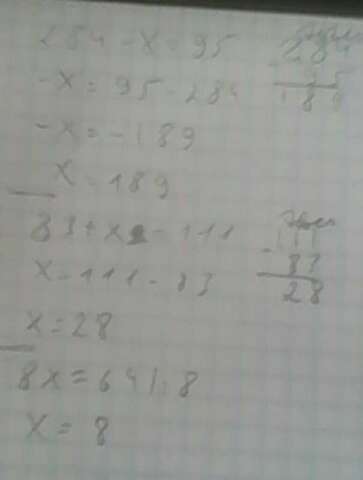 284 - x = 95
-x = 95 - 284
-x = -189
x = 189
83 + x = 111
x = 111 - 83
x = 28
8x = 64 | : 8
x = 8
284
- 95
189
111
- 83
28